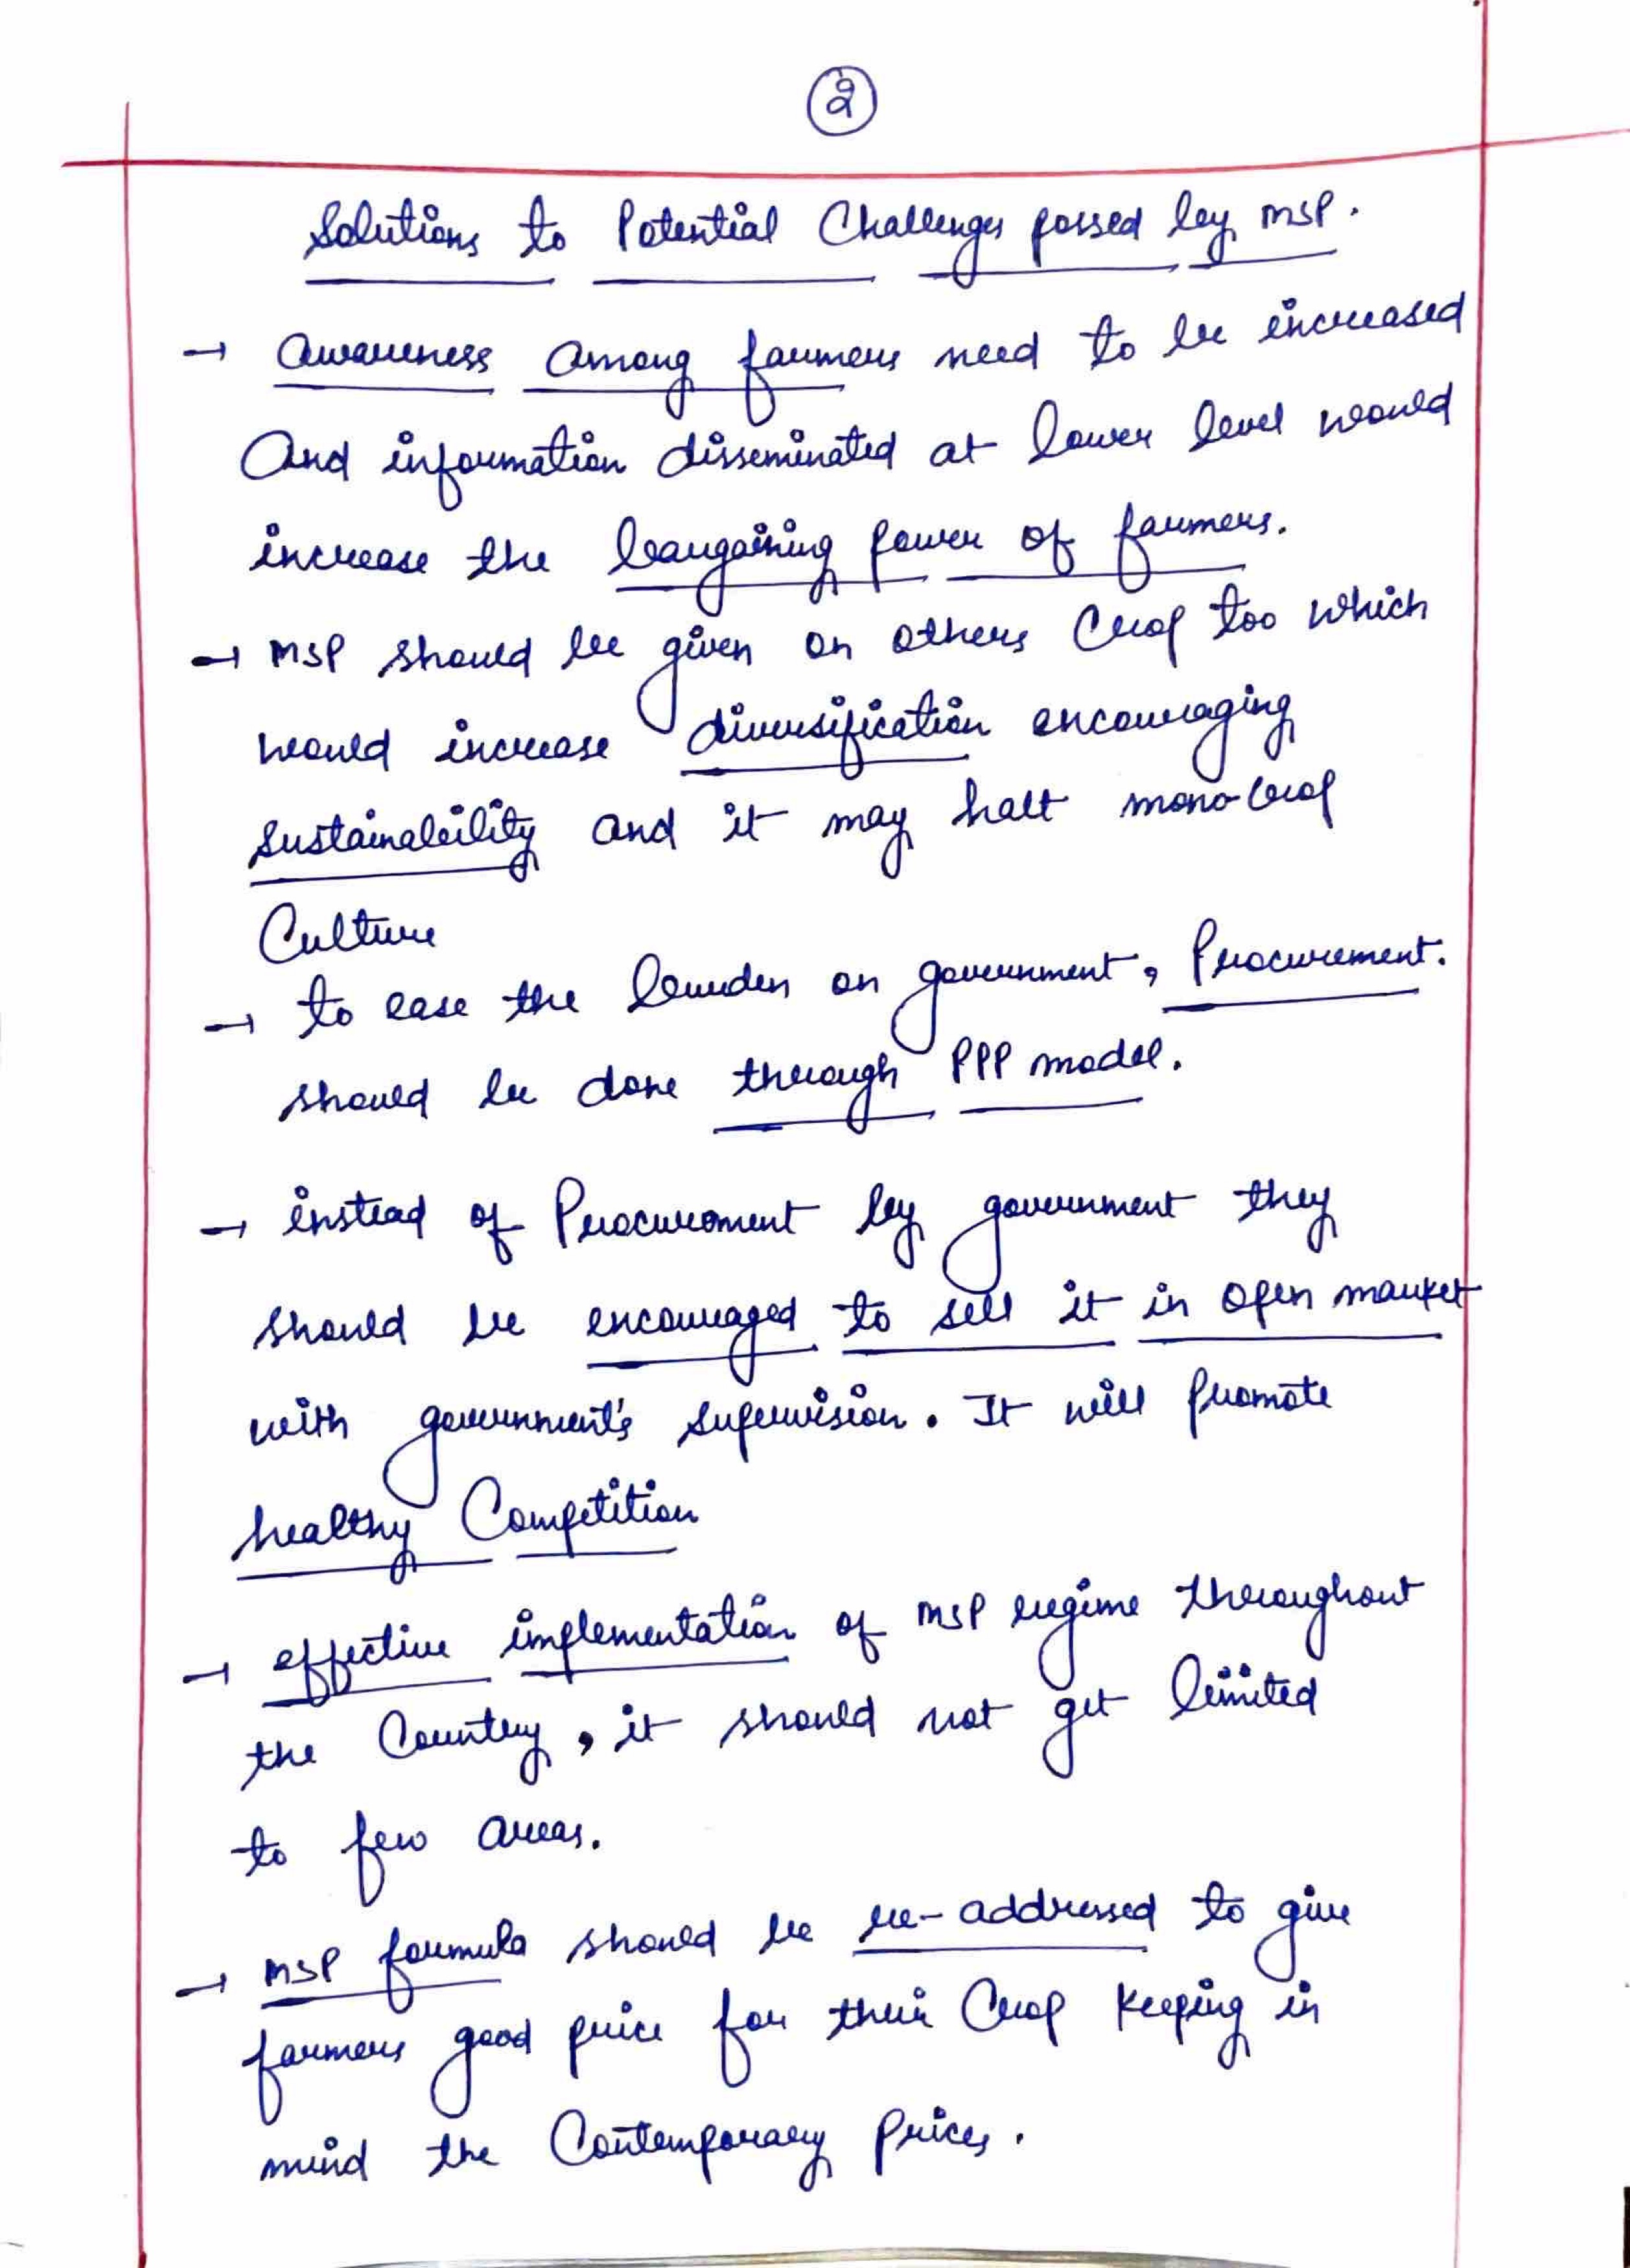 2
Solutions to Potential Challenges possed by MSP.
→ Awareness Among farmers need to be increased
And information disseminated at lower level would
increase the bargaining power of farmers.
→ MSP should be given on others Crop too which
would increase diversification encouraging
sustainability and it may halt mono-Crop
Culture
→ to ease the burden on government, Procurement.
should be done through PPP model.
→ instead of Procuroment by government they
should be encouraged to sell it in open market
with government's supervision. It will promote
healthy Competition
→ effective implementation of MSP regime throughout
the Country, it should not get limited
to few areas.
→ MSP formula should be re-addressed to give
farmers good price for their Crop keeping in
mind the Contemporary Prices.